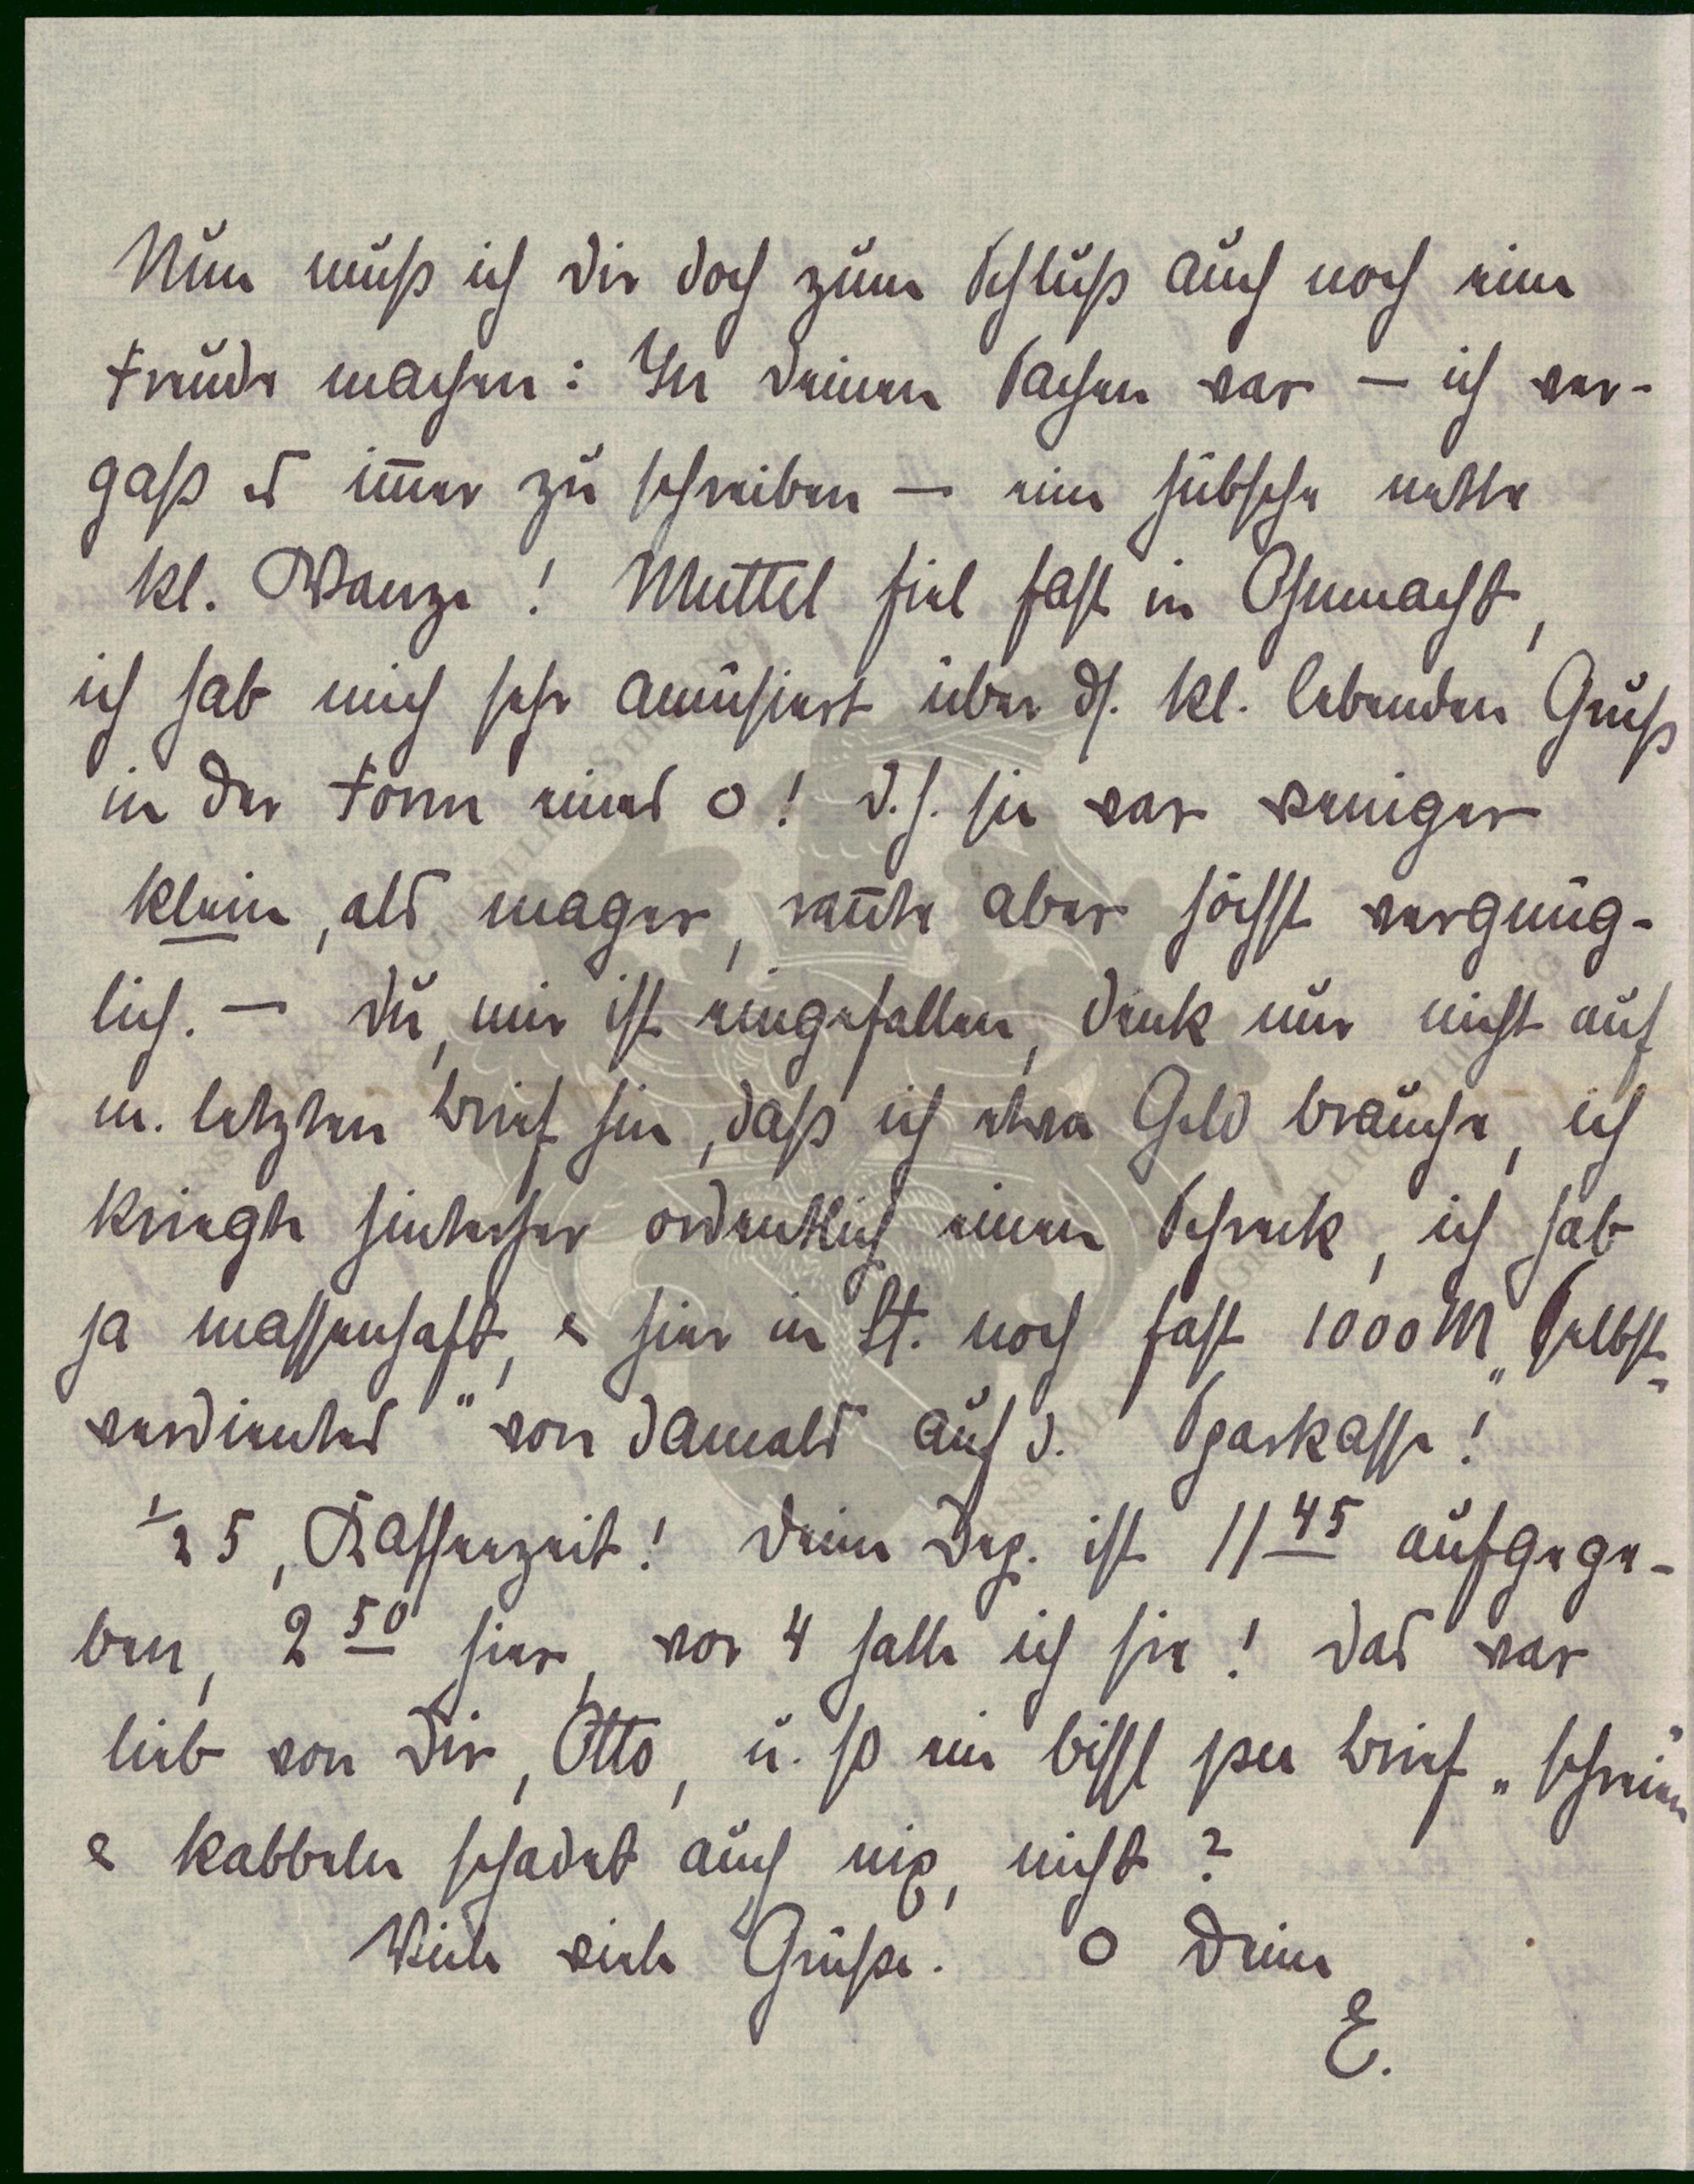 Nun muß ich Dir doch zum Schluß auch noch eine
Freude machen: In Deinen Sachen war — ich ver-
gaß es im̄er zu schreiben — eine hübsche nette
kl. Wanze! Muttel fiel fast in Ohnmacht,
ich hab mich sehr amüsiert über ds. kl. lebenden Gruß
in der Form eines o! D. h. sie war weniger
klein, als mager, ran̄te aber höchst vergnüg-
lich. — Du, mir ist eingefallen, denk nur nicht auf
m. letzten Brief hin, daß ich etwa Geld brauche, ich
kriegte hinterher ordentlich einen Schreck, ich hab
ja massenhaft, & hier in St. noch fast 1000 M „Selbst-
verdientes" von damals auf d. Sparkasse!
½ 5, Kaffeezeit! Deine Dep. ist 11 45 aufgege-
ben, 2 50 hier, vor 4 hatte ich sie! Das war
lieb von Dir, Otto, u. so ein bissl per Brief „schreien"
& kabbeln schadet auch nix, nicht?
Viele viele Grüße. o Deine
E.